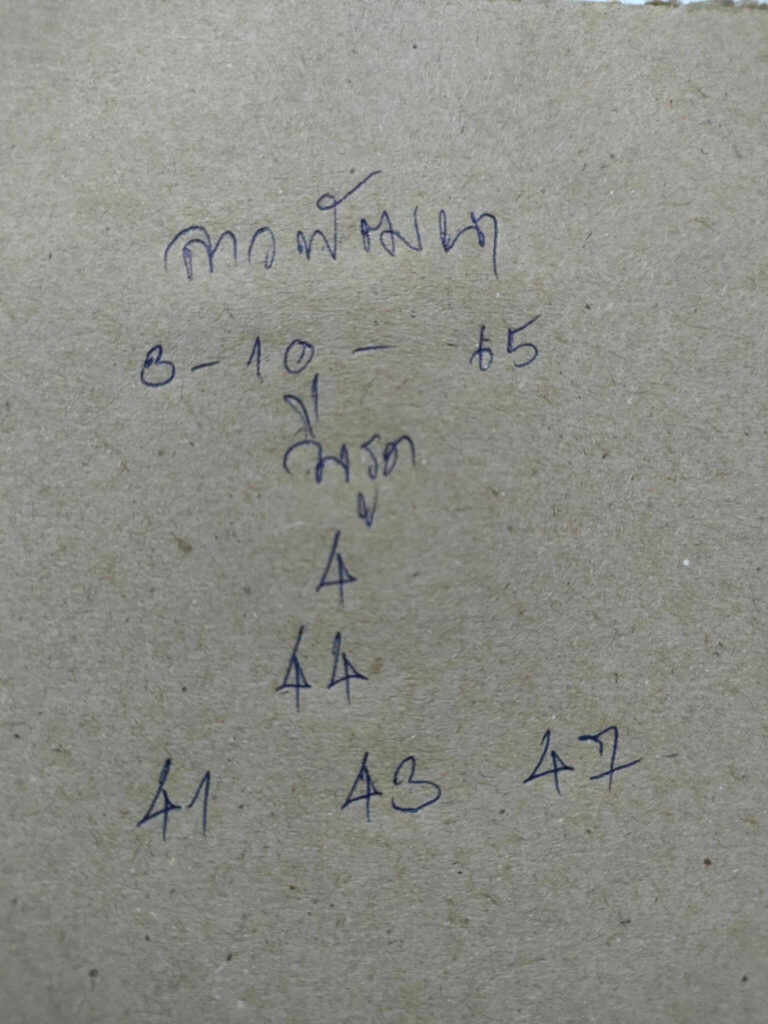 ลาวพัฒนา
3-10-65
วิ่งรูด
4
44
41 43 47